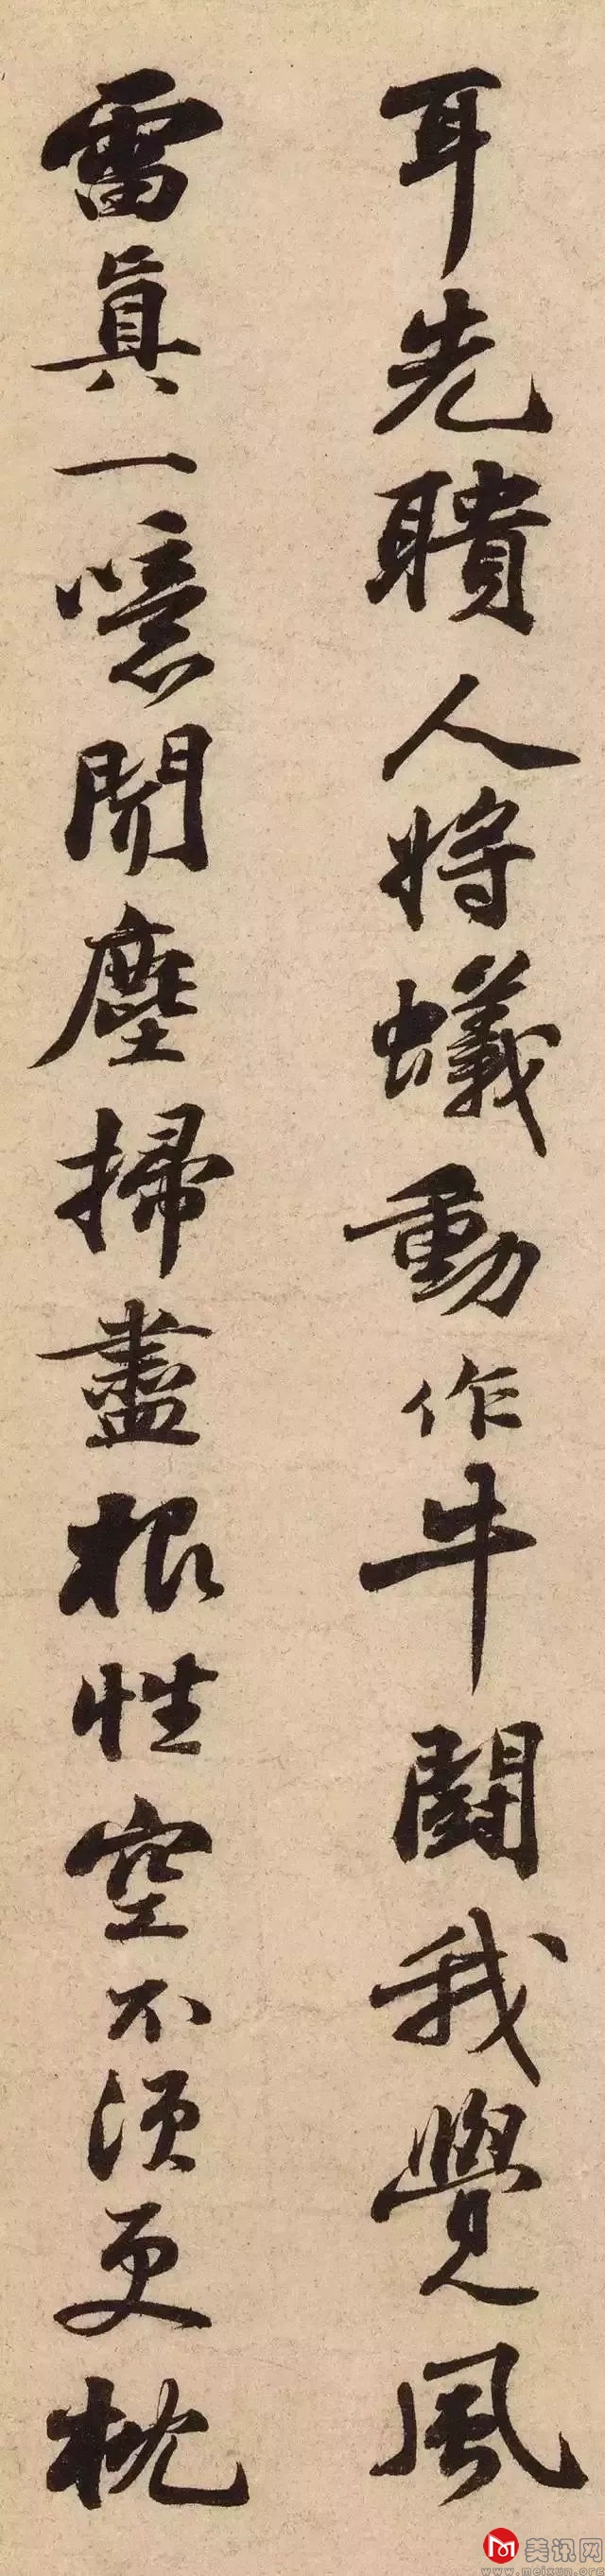 耳先聵人將蟻動作牛鬪我覺風
雷真一噫閒塵掃盡根性空不須更枕
美讯网
www.meixun.org